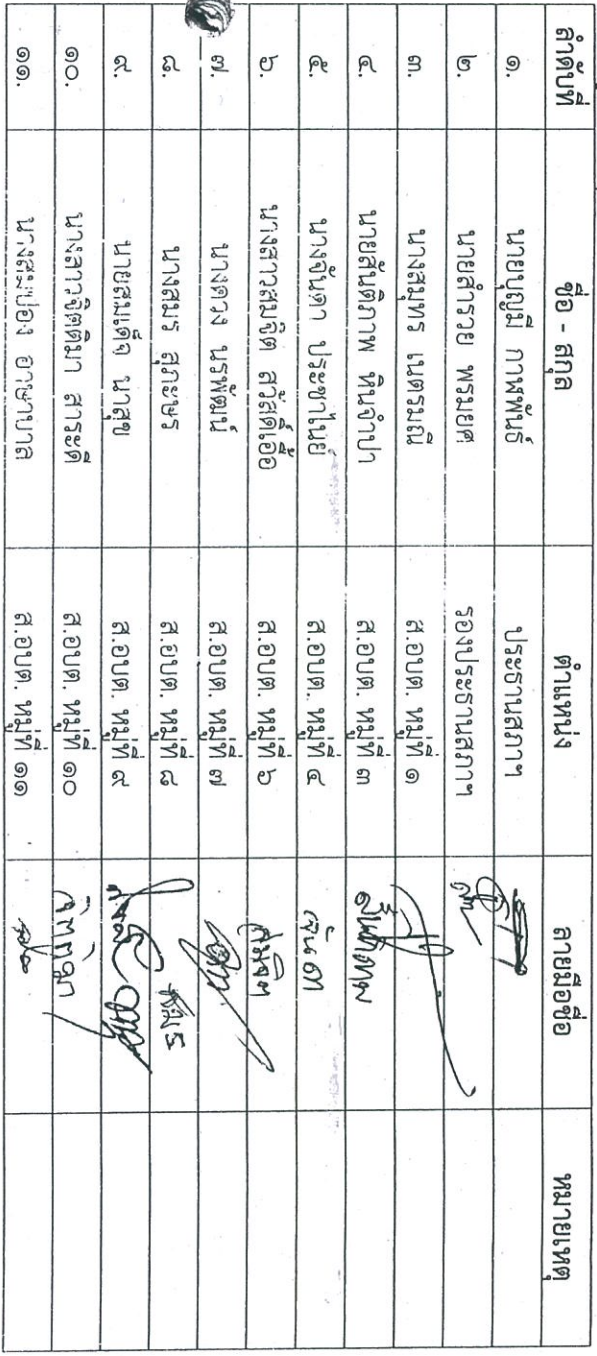 ลำดับที่ ชื่อ - สกุล ตำแหน่ง ลายมือชื่อ หมายเหตุ
๑. นายบุญมี กาฬพันธ์ ประธานสภาฯ
๒. นายสำรวย พรมยศ รองประธานสภาฯ
๓. นางสมุทร เนตรมณี ส.อบต. หมู่ที่ ๑
๔. นายสันติภาพ หินจำปา ส.อบต. หมู่ที่ ๓ สันติภาพ
๕. นางจันดา ประชาไนย์ ส.อบต. หมู่ที่ ๔ จันดา
๖. นางสาวสมจิต สวัสดิ์เอื้อ ส.อบต. หมู่ที่ ๖ สมจิต
๗. นางดวง นรพัฒน์ ส.อบต. หมู่ที่ ๗
๘. นางสมร สุภะษร ส.อบต. หมู่ที่ ๘ สมร
๙. นายสมเด็จ นาสุข ส.อบต. หมู่ที่ ๙
๑๐. นางสาวฐิตติมา สาระตี ส.อบต. หมู่ที่ ๑๐
๑๑. นางสะปอง อาษาบาล ส.อบต. หมู่ที่ ๑๑